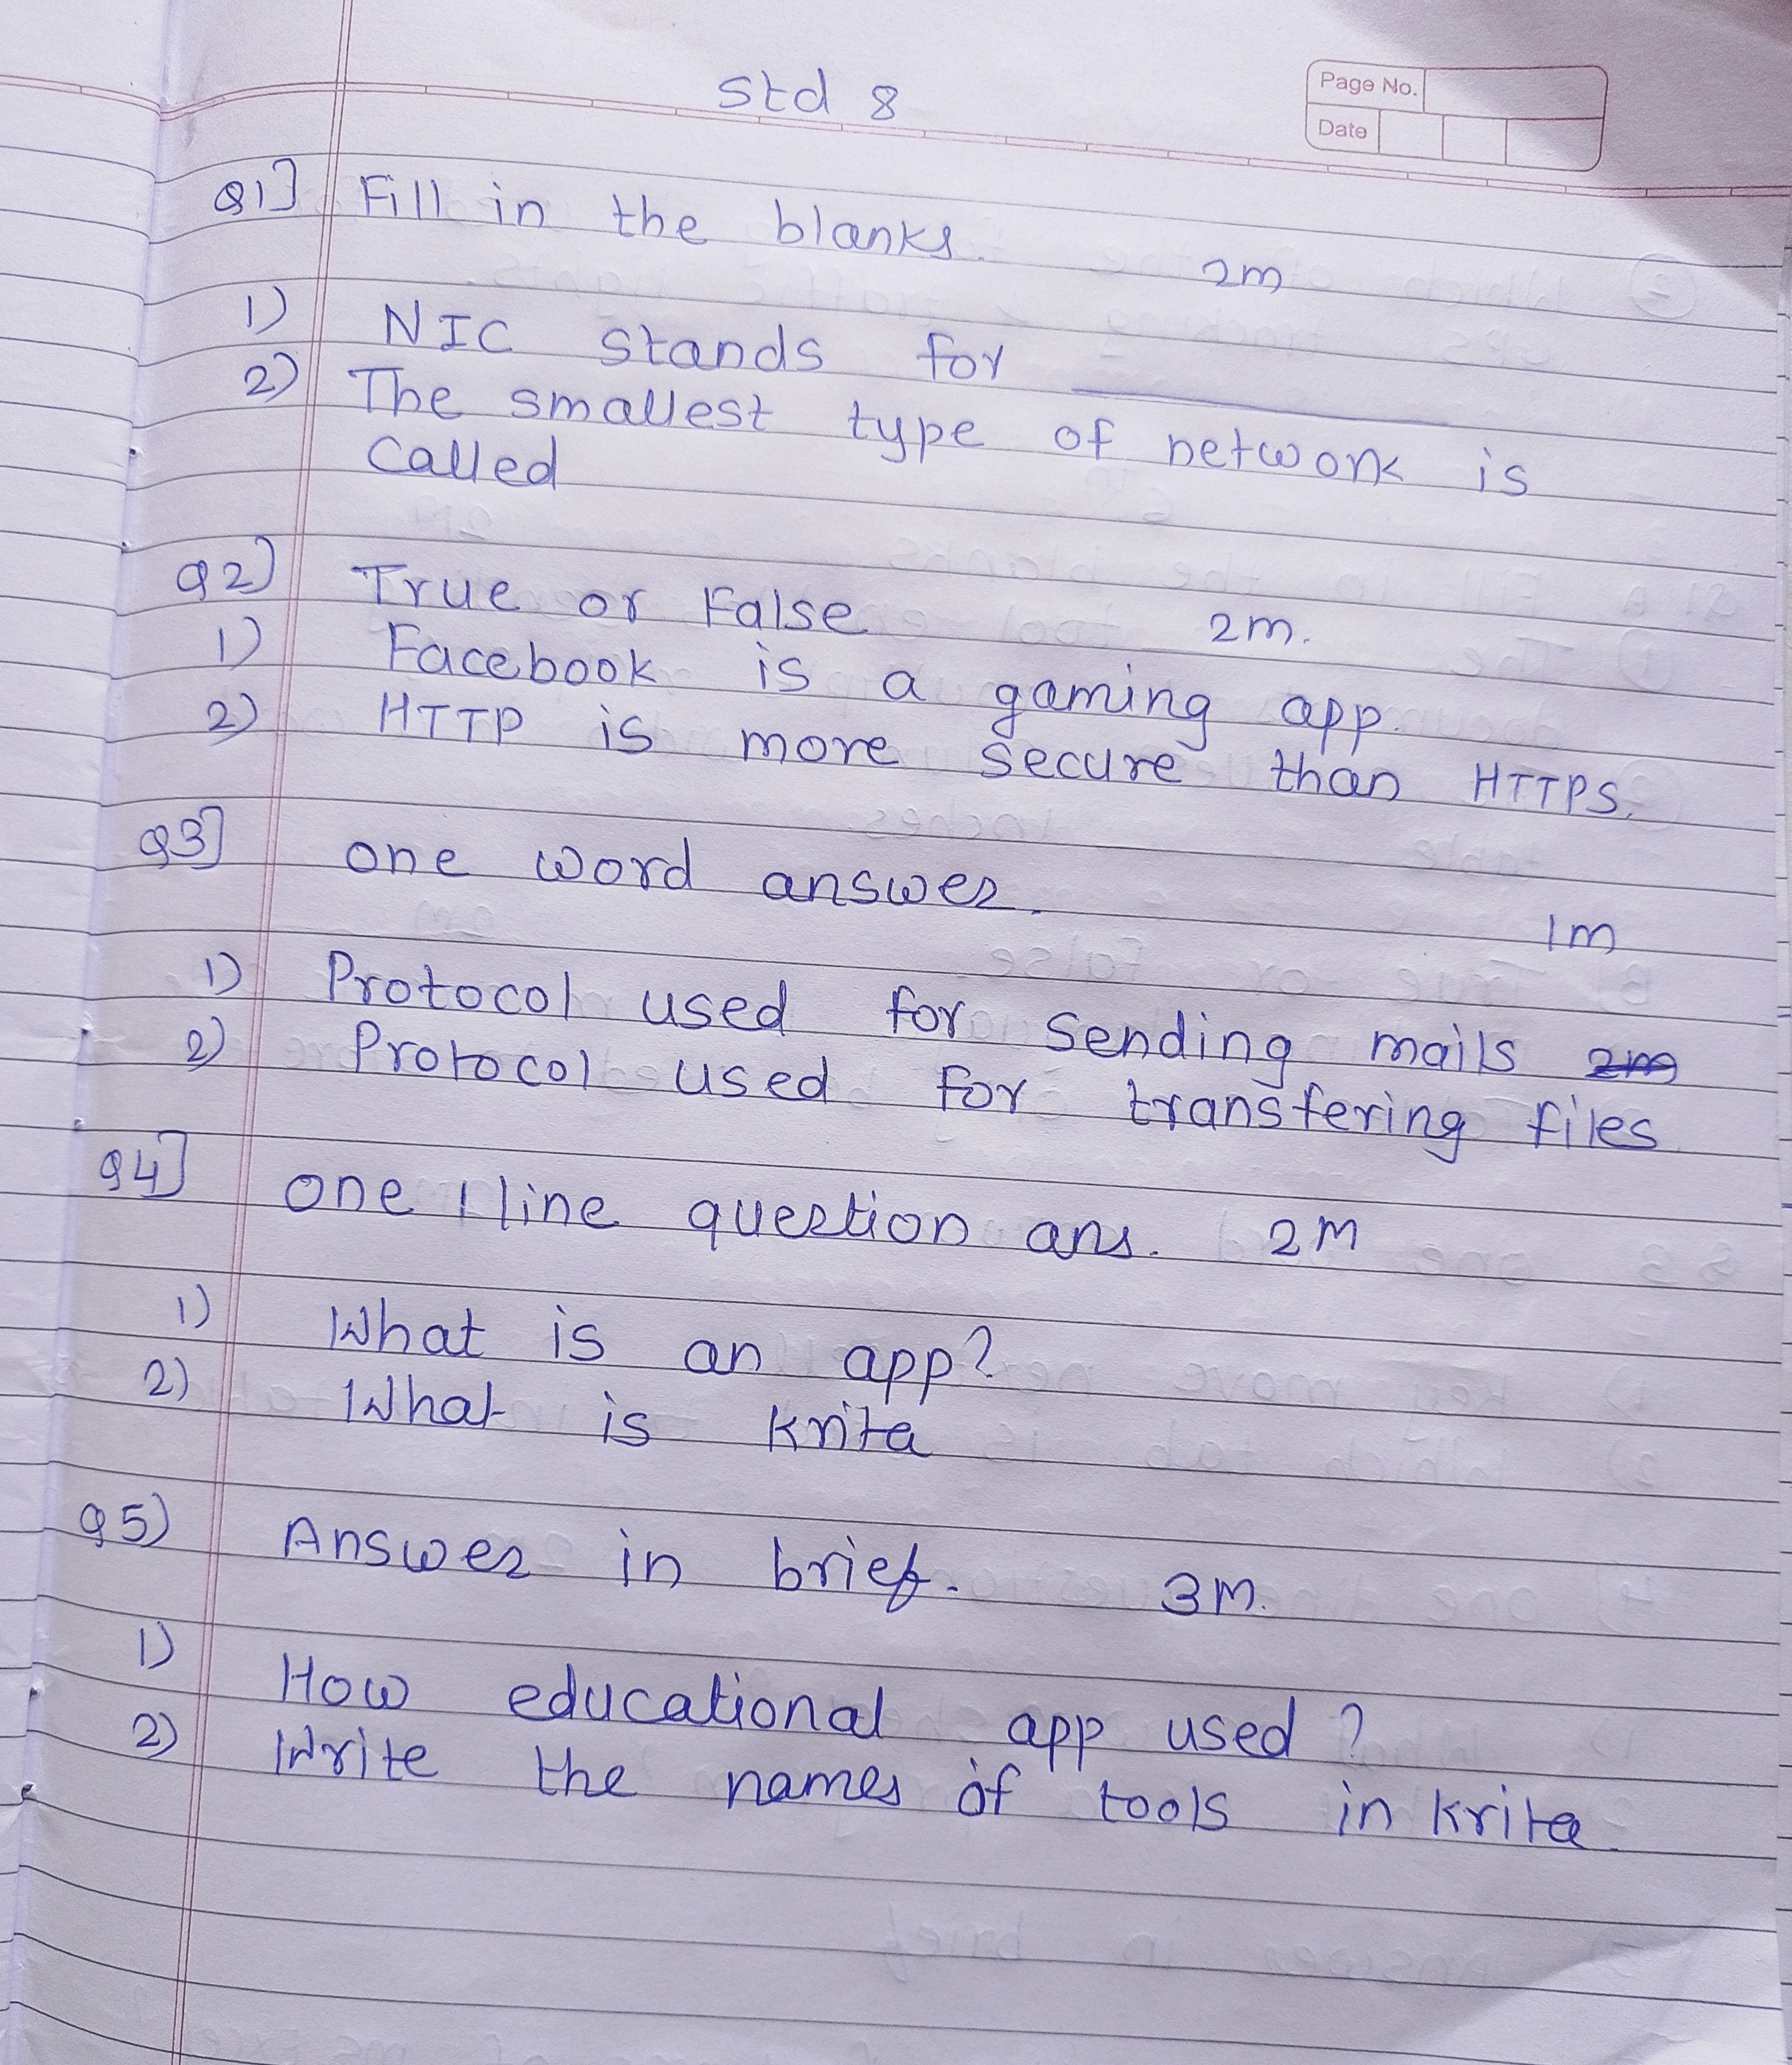 Std 8
Page No.
Date
Q1] Fill in the blanks. 2m
1) NIC stands for ________
2) The smallest type of network is
called
Q2) True or False 2m.
1) Facebook is a gaming app.
2) HTTP is more secure than HTTPS.
Q3] one word answer. 1m
1) Protocol used for sending mails 2m
2) Protocol used for transfering files
Q4] one 1 line question ans. 2M
1) What is an app?
2) What is Krita
Q5) Answer in brief. 3M.
1) How educational app used?
2) Write the names of tools in Krita.